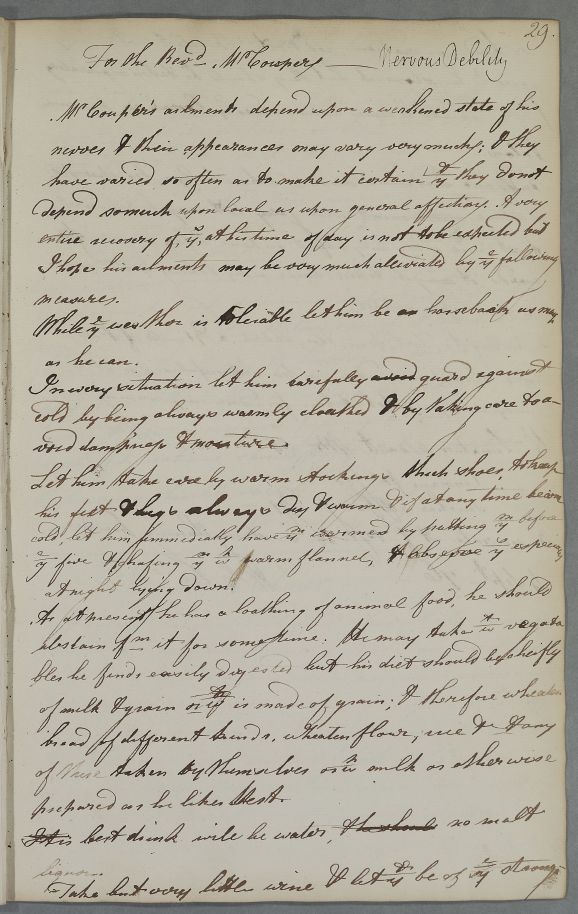 29.
For the Revd. Mr Cowpers — Nervous Debility
Mr Couper's ailments depend upon a weakened state of his
nerves & their appearances may vary very much; & they
have varied so often as to make it certain yt they do not
depend somuch upon local as upon general affection. A very
entire recovery of ym, at his time of day is not to be expected but
I hope his ailments may be very much alleviated by ye following
measures.
While ye weather is tolerable let him be on horseback as much
as he can.
In every situation let him carefully avoid guard against
cold by being always warmly cloathed & by taking care to a-
void dampness & moisture.
Let him take care by warm stockings thick shoes to keep
his feet & legs always dry & warm & if at any time become
cold, let him immediatly have ym warmed by putting ym before
ye fire & chafing ym wt warm flannel, & observe yt especially
at night lying down.
As at present he has a loathing of animal food, he should
abstain fm it for some time. He may take wt vegeta
bles he finds easily digested but his diet should be cheifly
of milk & grain or wt is made of grain; & therefore wheaten
bread of different kinds, wheaten flour, rice &c & any
of these taken by themselves or wt milk or otherwise
prepared as he likes best.
It is best drink will be water, the should no malt
liquor.
Take but very little wine & let yt be of ye strongest